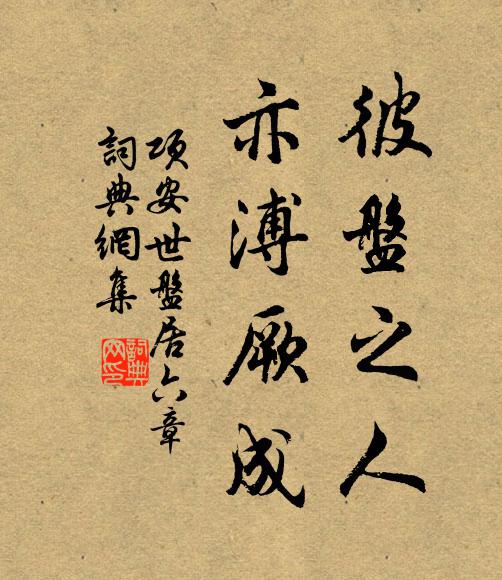 彼盤之人
亦溥厥成
項安世盤居六章
詞典網集
詞典
网印